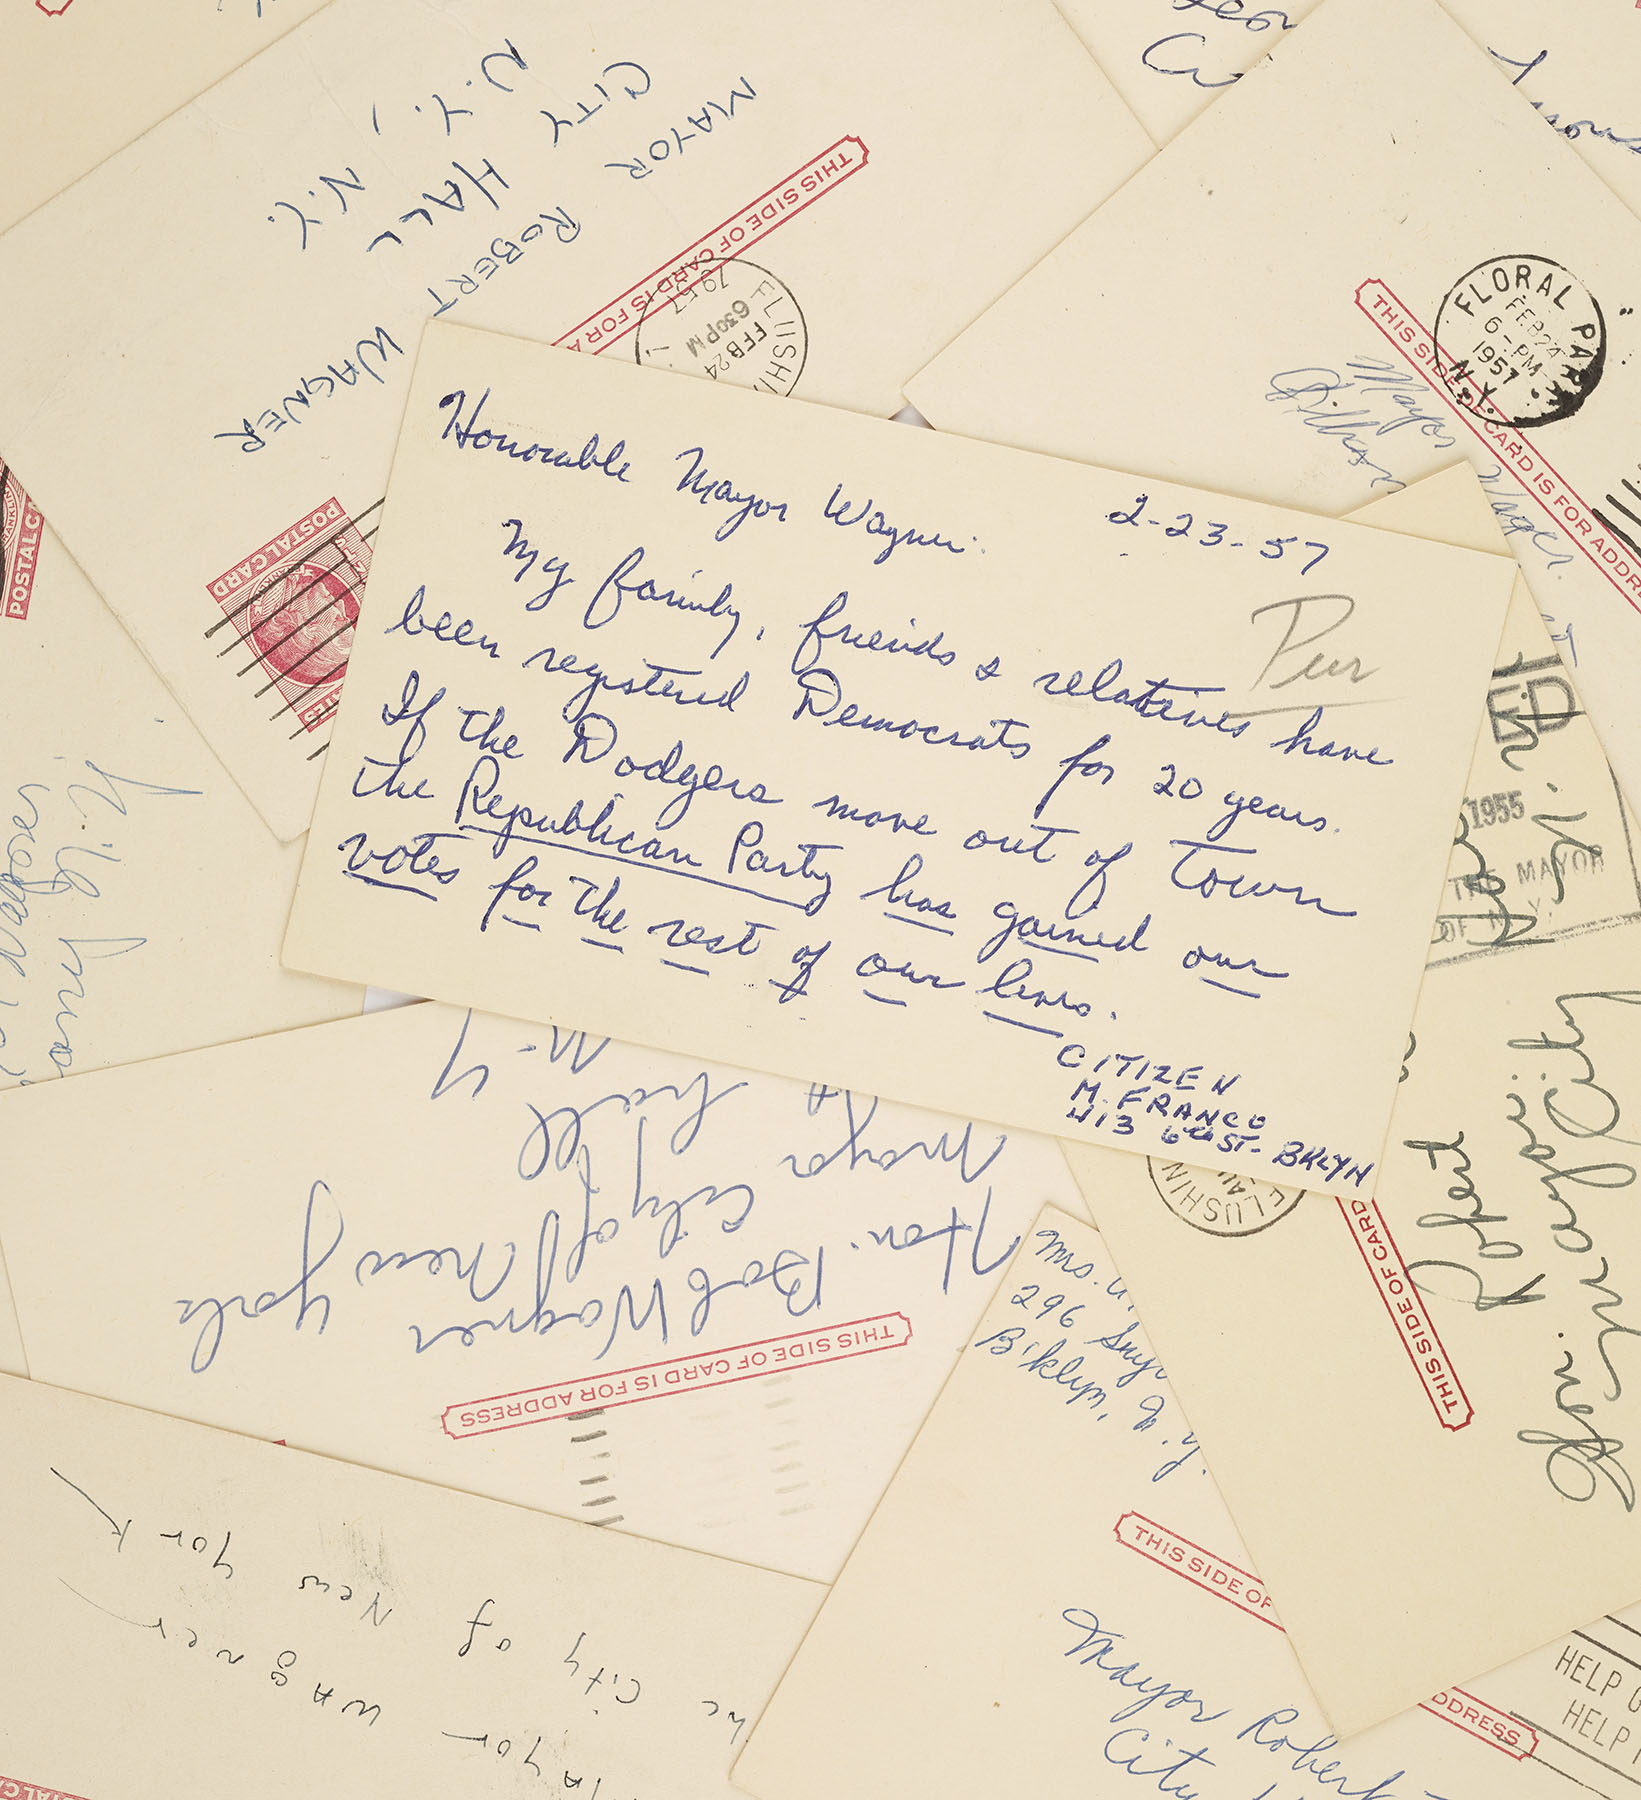 MAYOR ROBERT WAGNER
CITY HALL
N.Y., N.Y.
THIS SIDE OF CARD IS FOR A
FLUSHI
FEB 24
630 PM
1957
POSTAL CARD
THIS SIDE OF CARD IS FOR ADDRE
FLORAL PARK
FEB 24
6-PM
1957
N.Y.
Mayor Wagner
Honorable Mayor Wagner:
2-23-57
My family, friends & relatives have
been registered Democrats for 20 years.
If the Dodgers move out of town
the Republican Party has gained our
votes for the rest of our lives.
CITIZEN
M. FRANCO
413 6th ST- BKLYN
POSTAL C
1955
THE MAYOR
OF N.Y.
Hon. Robert
Mayor
City
Hon. Bob Wagner
Mayor City of New York
City Hall
N.Y
THIS SIDE OF CARD IS FOR ADDRESS
FLUSHIN
THIS SIDE OF CARD
Mrs.
296
B'klyn, N.Y.
THIS SIDE OF
Mayor Robert
City
DDRESS
HELP
HELP
ayor Wagner
City of New York